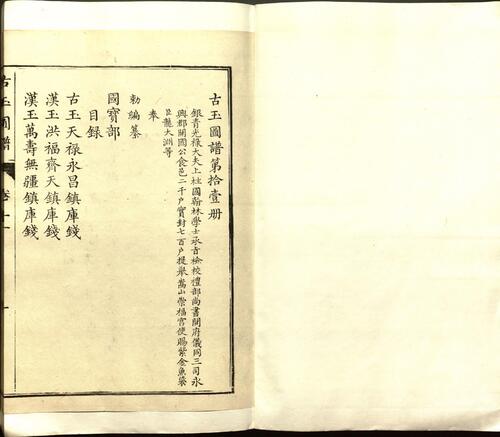 古玉圖譜第拾壹册
銀青光祿大夫上柱國翰林學士承旨檢校禮部尚書開府儀同三司永
興郡開國公食邑二千户實封七百户提舉嵩山崇福宮使賜紫金魚袋
臣龍大淵等
奉
勅編纂
國寶部
目録
古玉天祿永昌鎮庫錢
漢玉洪福齊天鎮庫錢
漢玉萬壽無疆鎮庫錢
古玉圖譜
卷十一
一